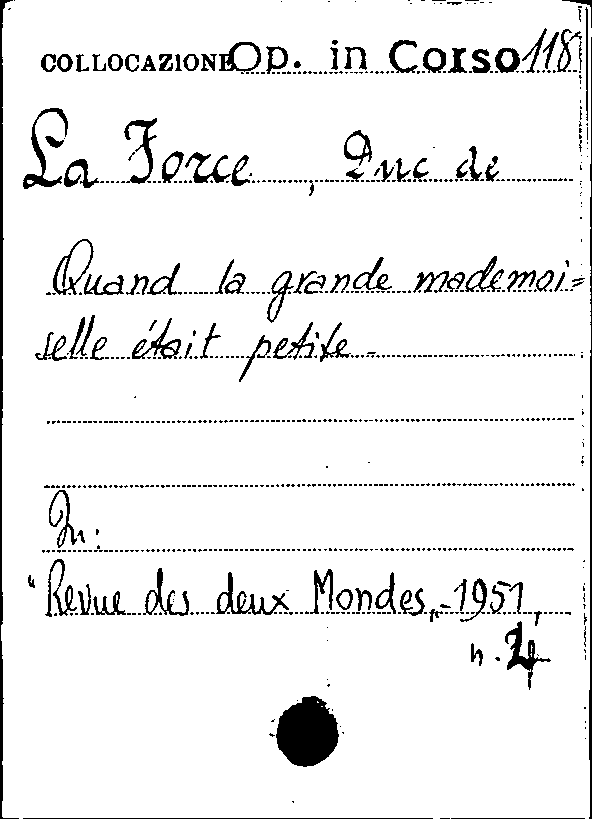 COLLOCAZIONE Op. in Corso 118
La Force, Duc de
Quand la grande mademoi=
selle était petite.
In:
"Revue des deux Mondes„-1951,
n.